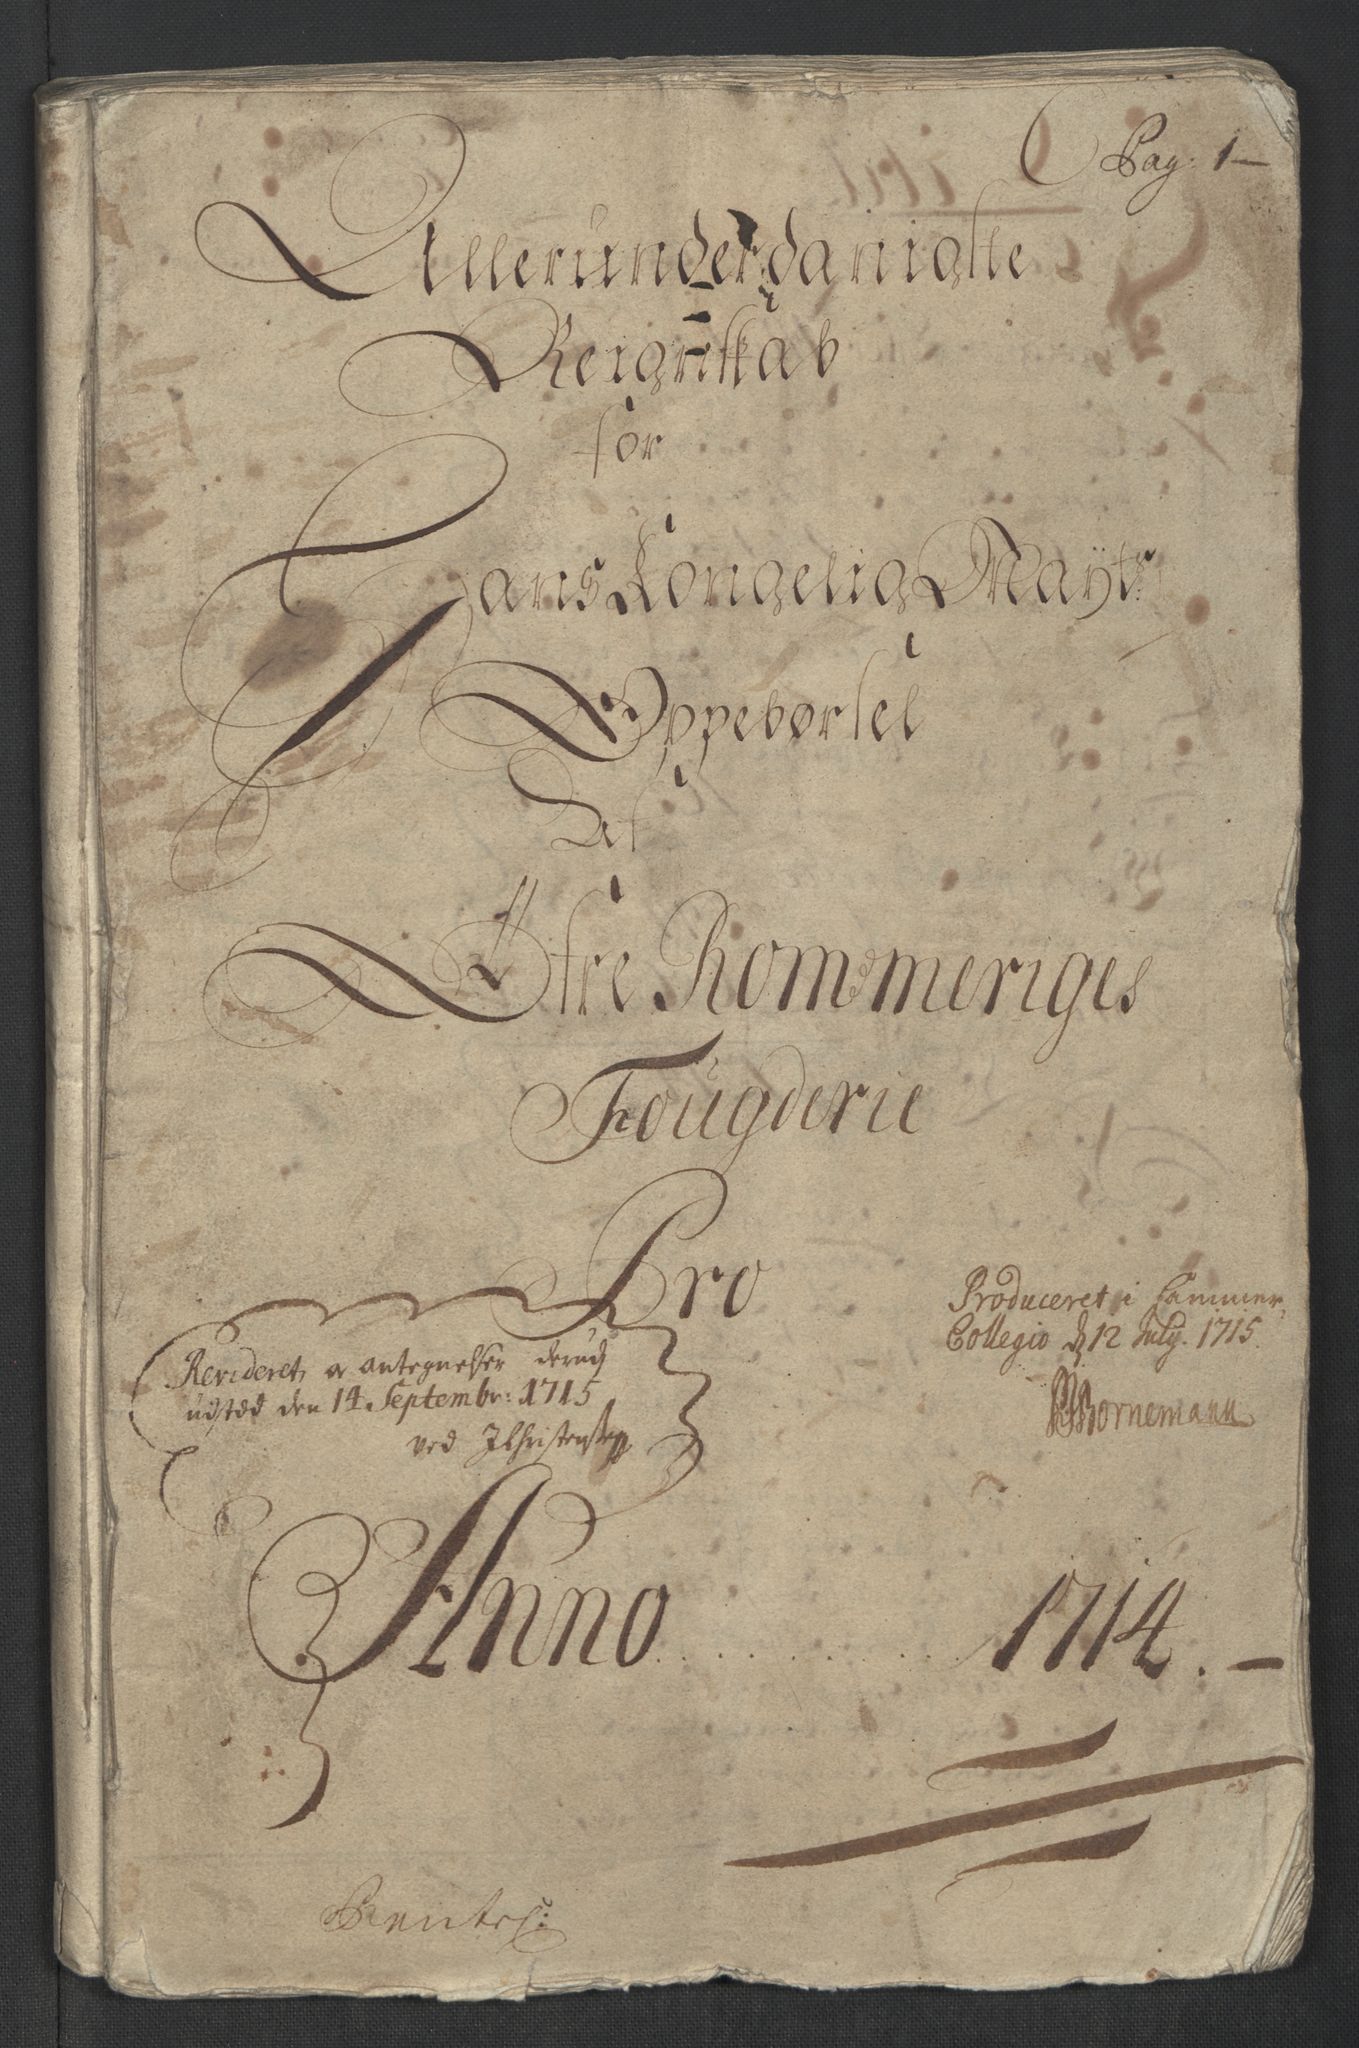 Pag. 1 –
Allerunderdanigste
Reignskab
for
Hans Kongelig Mayts:
Oppebørsel
Af
Øfre Rommeriges
Fougderie
Pro
Produceret i Cammer
Collegio d 12 July. 1715.
Bornemann
Revideret, og antegnelser derud
udstæd den 14 Septembr: 1715
ved JChristensen
Anno .......... 1714. –